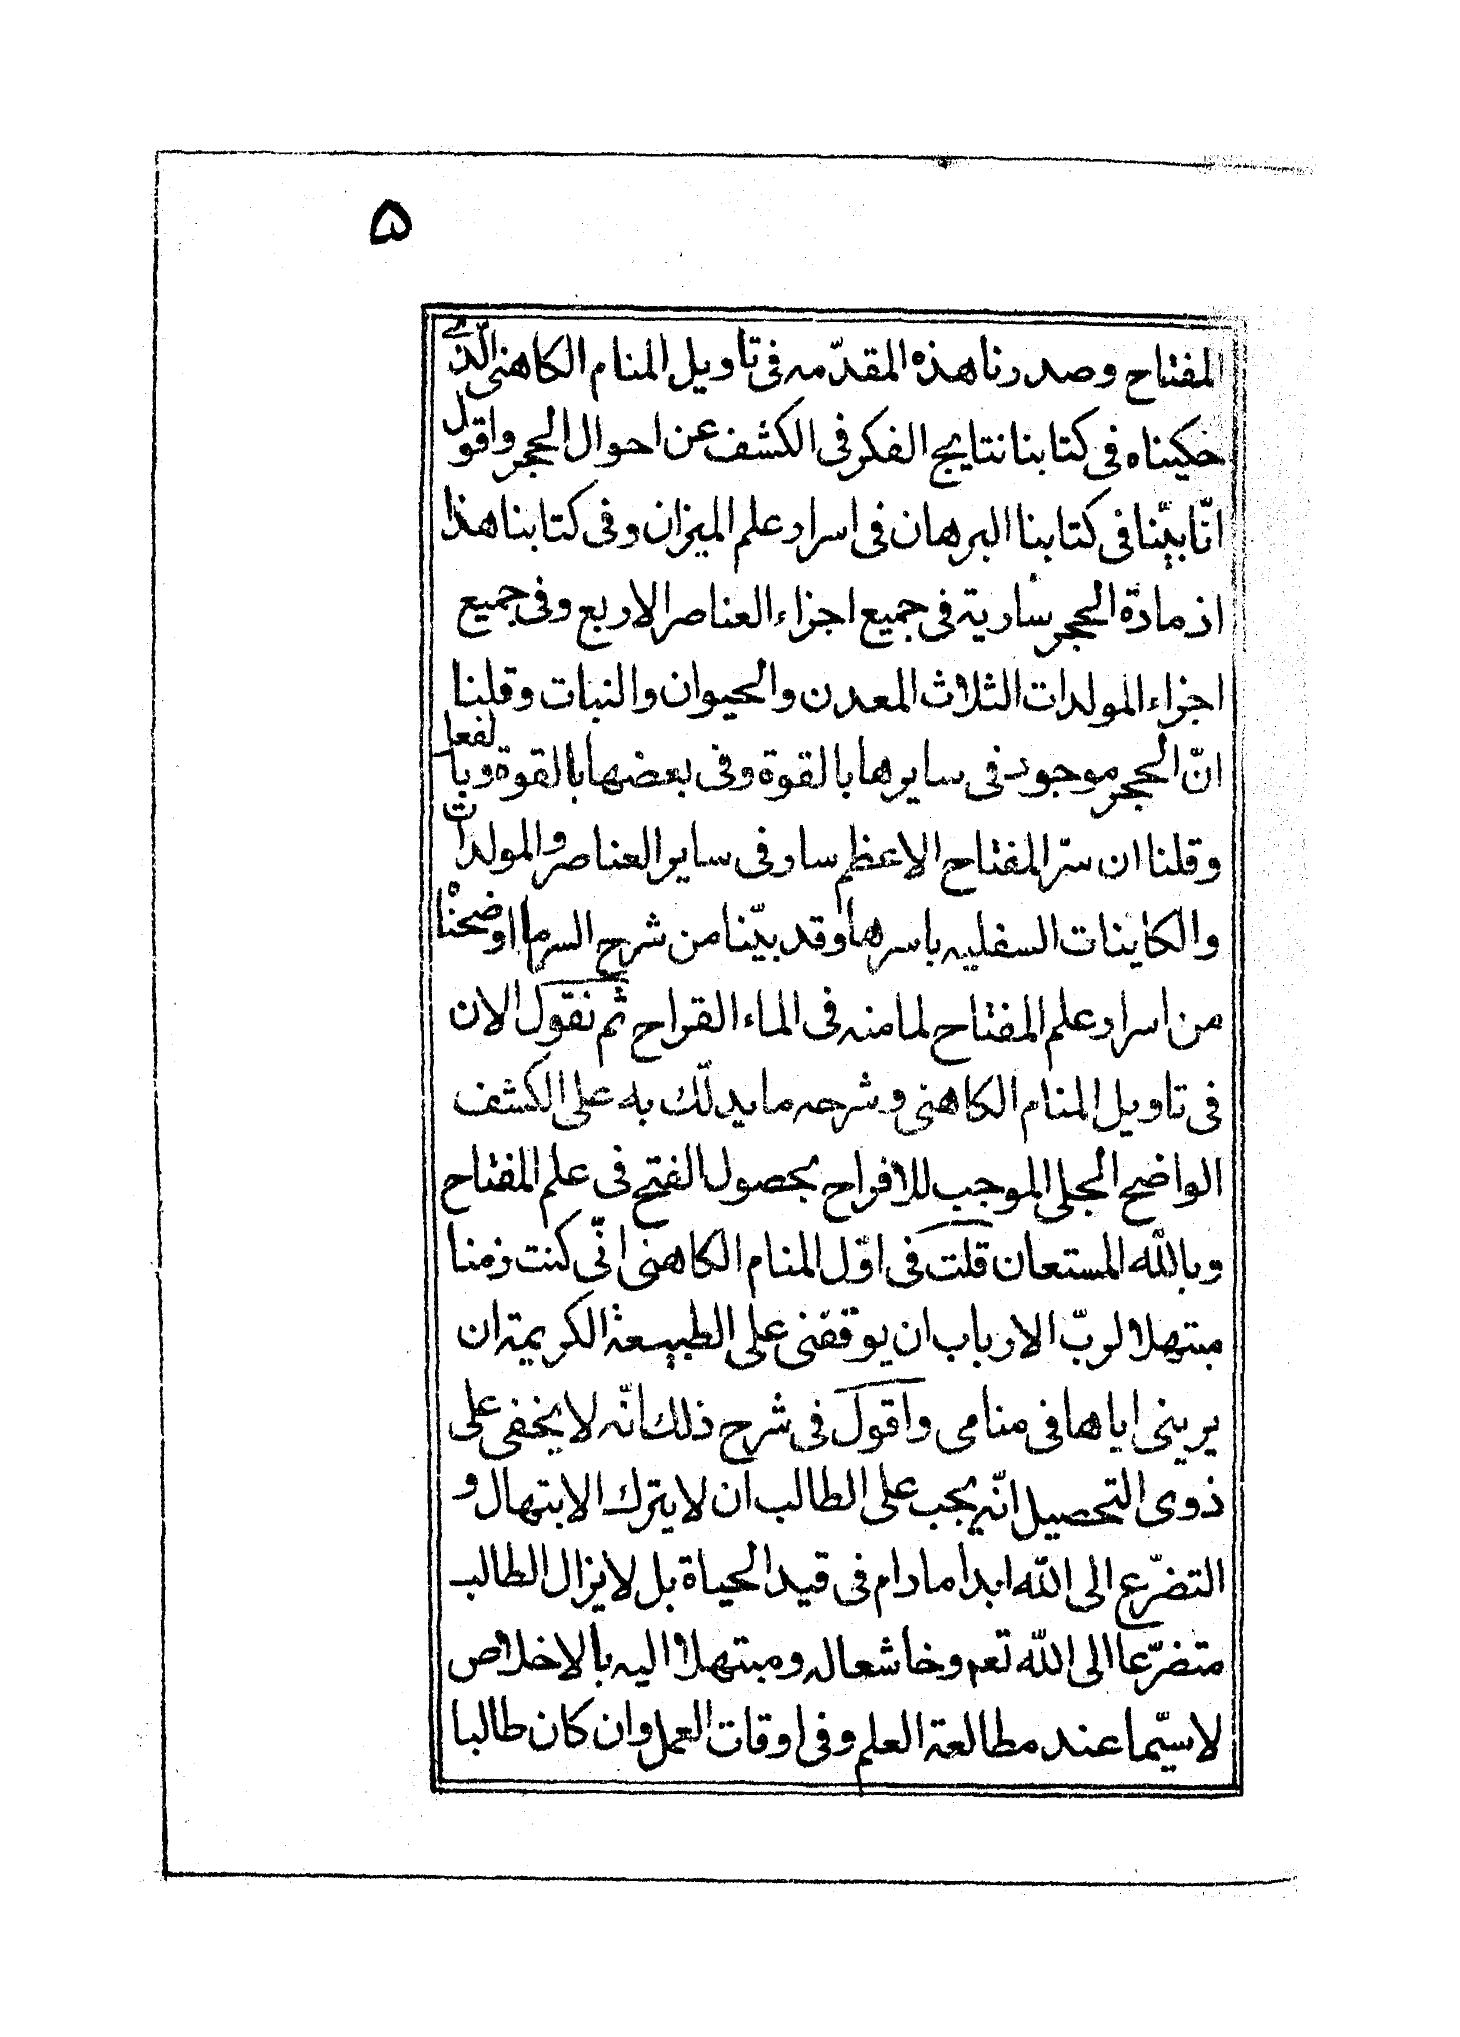 ۵
المفتاح وصدرنا هذه المقدّمه فى تاويل المنام الكاهنى الّذى
حكيناه فى كتابنا نتايج الفكر فى الكشف عن احوال الحجر واقول
انّا بيّنا فى كتابنا البرهان فى اسرار علم الميزان وفى كتابنا هذا
اذ مادة الحجر سارية فى جميع اجزاء العناصر الاربع وفى جميع
اجزاء المولدات الثلاث المعدن والحيوان والنبات وقلنا
انّ الحجر موجود فى سايرها بالقوة وفى بعضها بالقوة وبالفعل
وقلنا ان سرّ المفتاح الاعظم سار فى ساير العناصر والمولدات
والكاينات السفليه باسرها وقد بيّنا من شرح السر ما اوضحناه
من اسرار علم المفتاح لما منه فى الماء القراح ثم نقول الان
فى تاويل المنام الكاهنى وشرحه ما يدلّك به على الكشف
الواضح الجلى الموجب للافراح بحصول الفتح فى علم المفتاح
وبالله المستعان قلت فى اوّل المنام الكاهنى انّى كنت زمنا
مبتهلا لربّ الارباب ان يوقفنى على الطبيعة الكريمة ان
يرينى اياها فى منامى واقول فى شرح ذلك انّه لا يخفى على
ذوى التحصيل انّه يجب على الطالب ان لا يترك الابتهال و
التضرّع الى الله ابدا مادام فى قيد الحياة بل لا يزال الطالب
متضرّعا الى الله تعم وخاشعا له ومبتهلا اليه بالاخلاص
لا سيّما عند مطالعة العلم وفى اوقات العمل وان كان طالبا